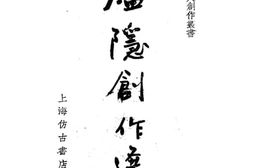 人創作叢書
廬隱創作選
上海仿古書店